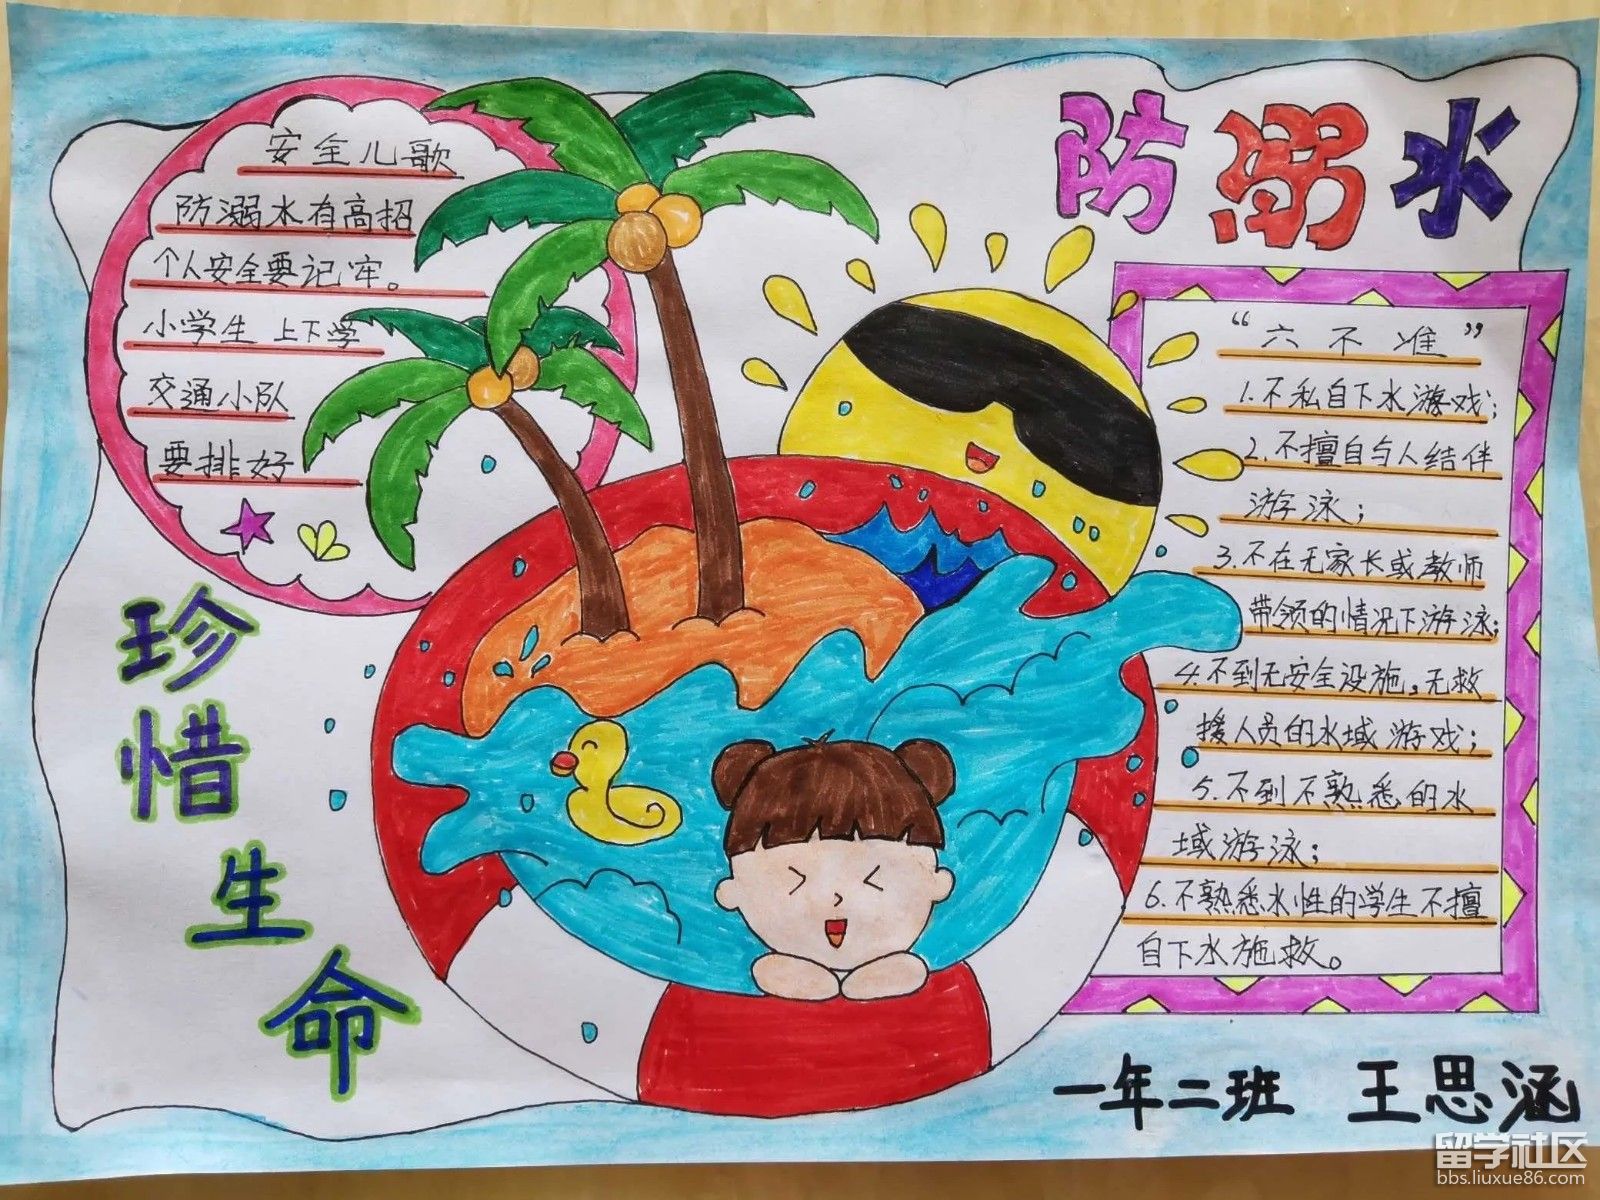 防溺水
安全儿歌
防溺水有高招
个人安全要记牢。
小学生 上下学
交通小队
要排好
珍惜生命
“六不准”
1.不私自下水游戏;
2.不擅自与人结伴
游泳;
3.不在无家长或教师
带领的情况下游泳;
4.不到无安全设施,无救
援人员的水域游戏;
5.不到不熟悉的水
域游泳;
6.不熟悉水性的学生不擅
自下水施救。
一年二班 王思涵
留学社区
bbs.liuxue86.com